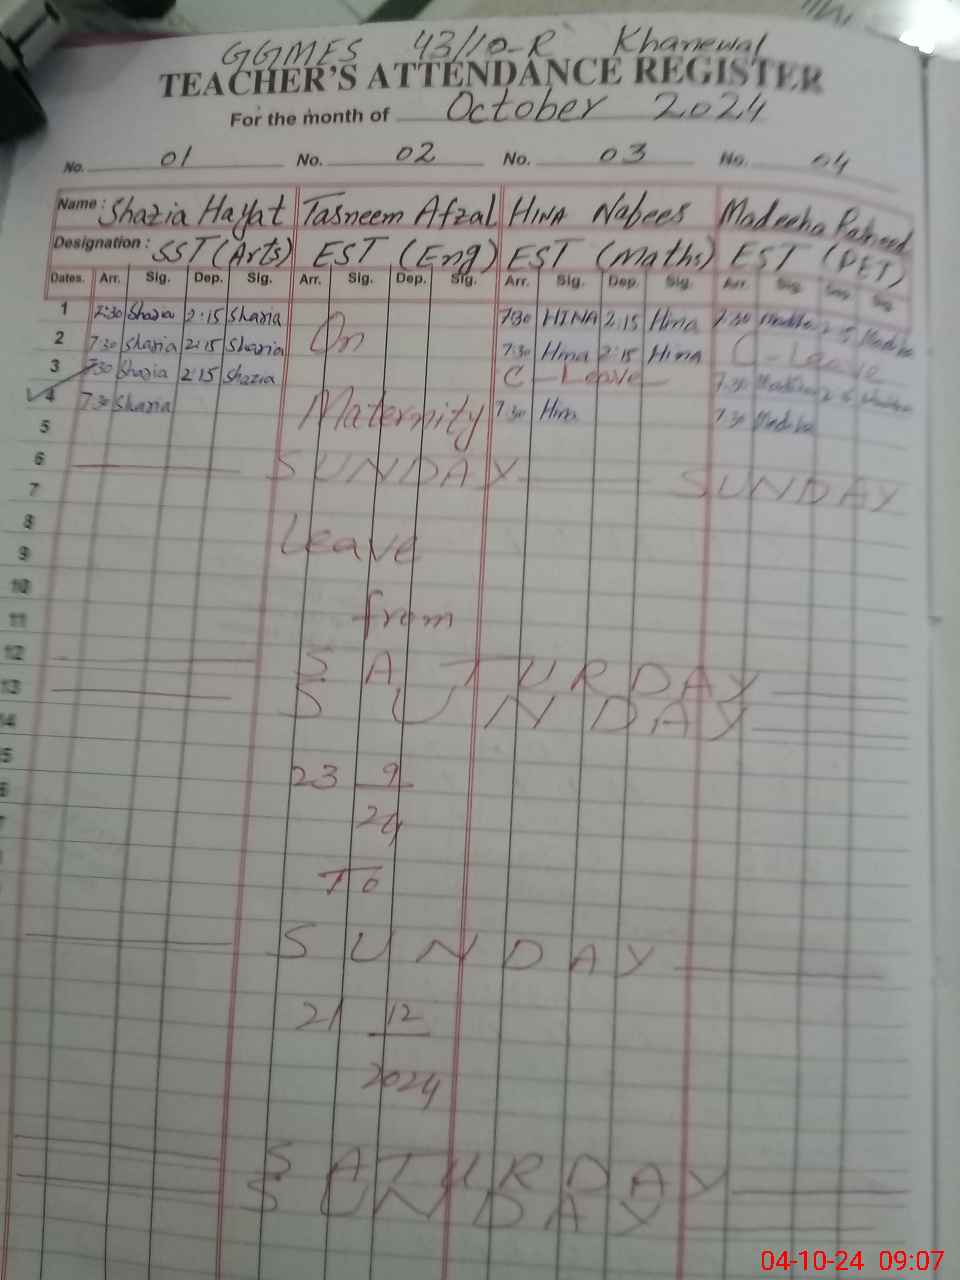 GGMES 43/10-R Khanewal
TEACHER'S ATTENDANCE REGISTER
For the month of October 2024
No. 01 No. 02 No. 03 No. 04
Name: Shazia Hayat Tasneem Afzal HINA Nafees Madeeha Rasheed
Designation: SST (Arts) EST (Eng) EST (Maths) EST (PET)
Dates. Arr. Sig. Dep. Sig. Arr. Sig. Dep. Sig. Arr. Sig. Dep. Sig. Arr. Sig. Sig.
1 7:30 Shazia 2:15 Shazia On 7:30 HINA 2:15 Hina 7:30 Madeeha 2:15 Madeeha
2 7:30 Shazia 2:15 Shazia 7:30 Hina 2:15 Hina C-Leave
3 7:30 Shazia 2:15 Shazia C-Leave 7:30 Madeeha 2:15 Madeeha
4 7:30 Shazia Maternity 7:30 Hina 7:30 Madeeha
5
6 SUNDAY SUNDAY
7
8 Leave
9
10
11 from
12 SATURDAY
13 SUNDAY
14
23 9
24
To
SUNDAY
21 12
2024
SATURDAY
SUNDAY
04-10-24 09:07